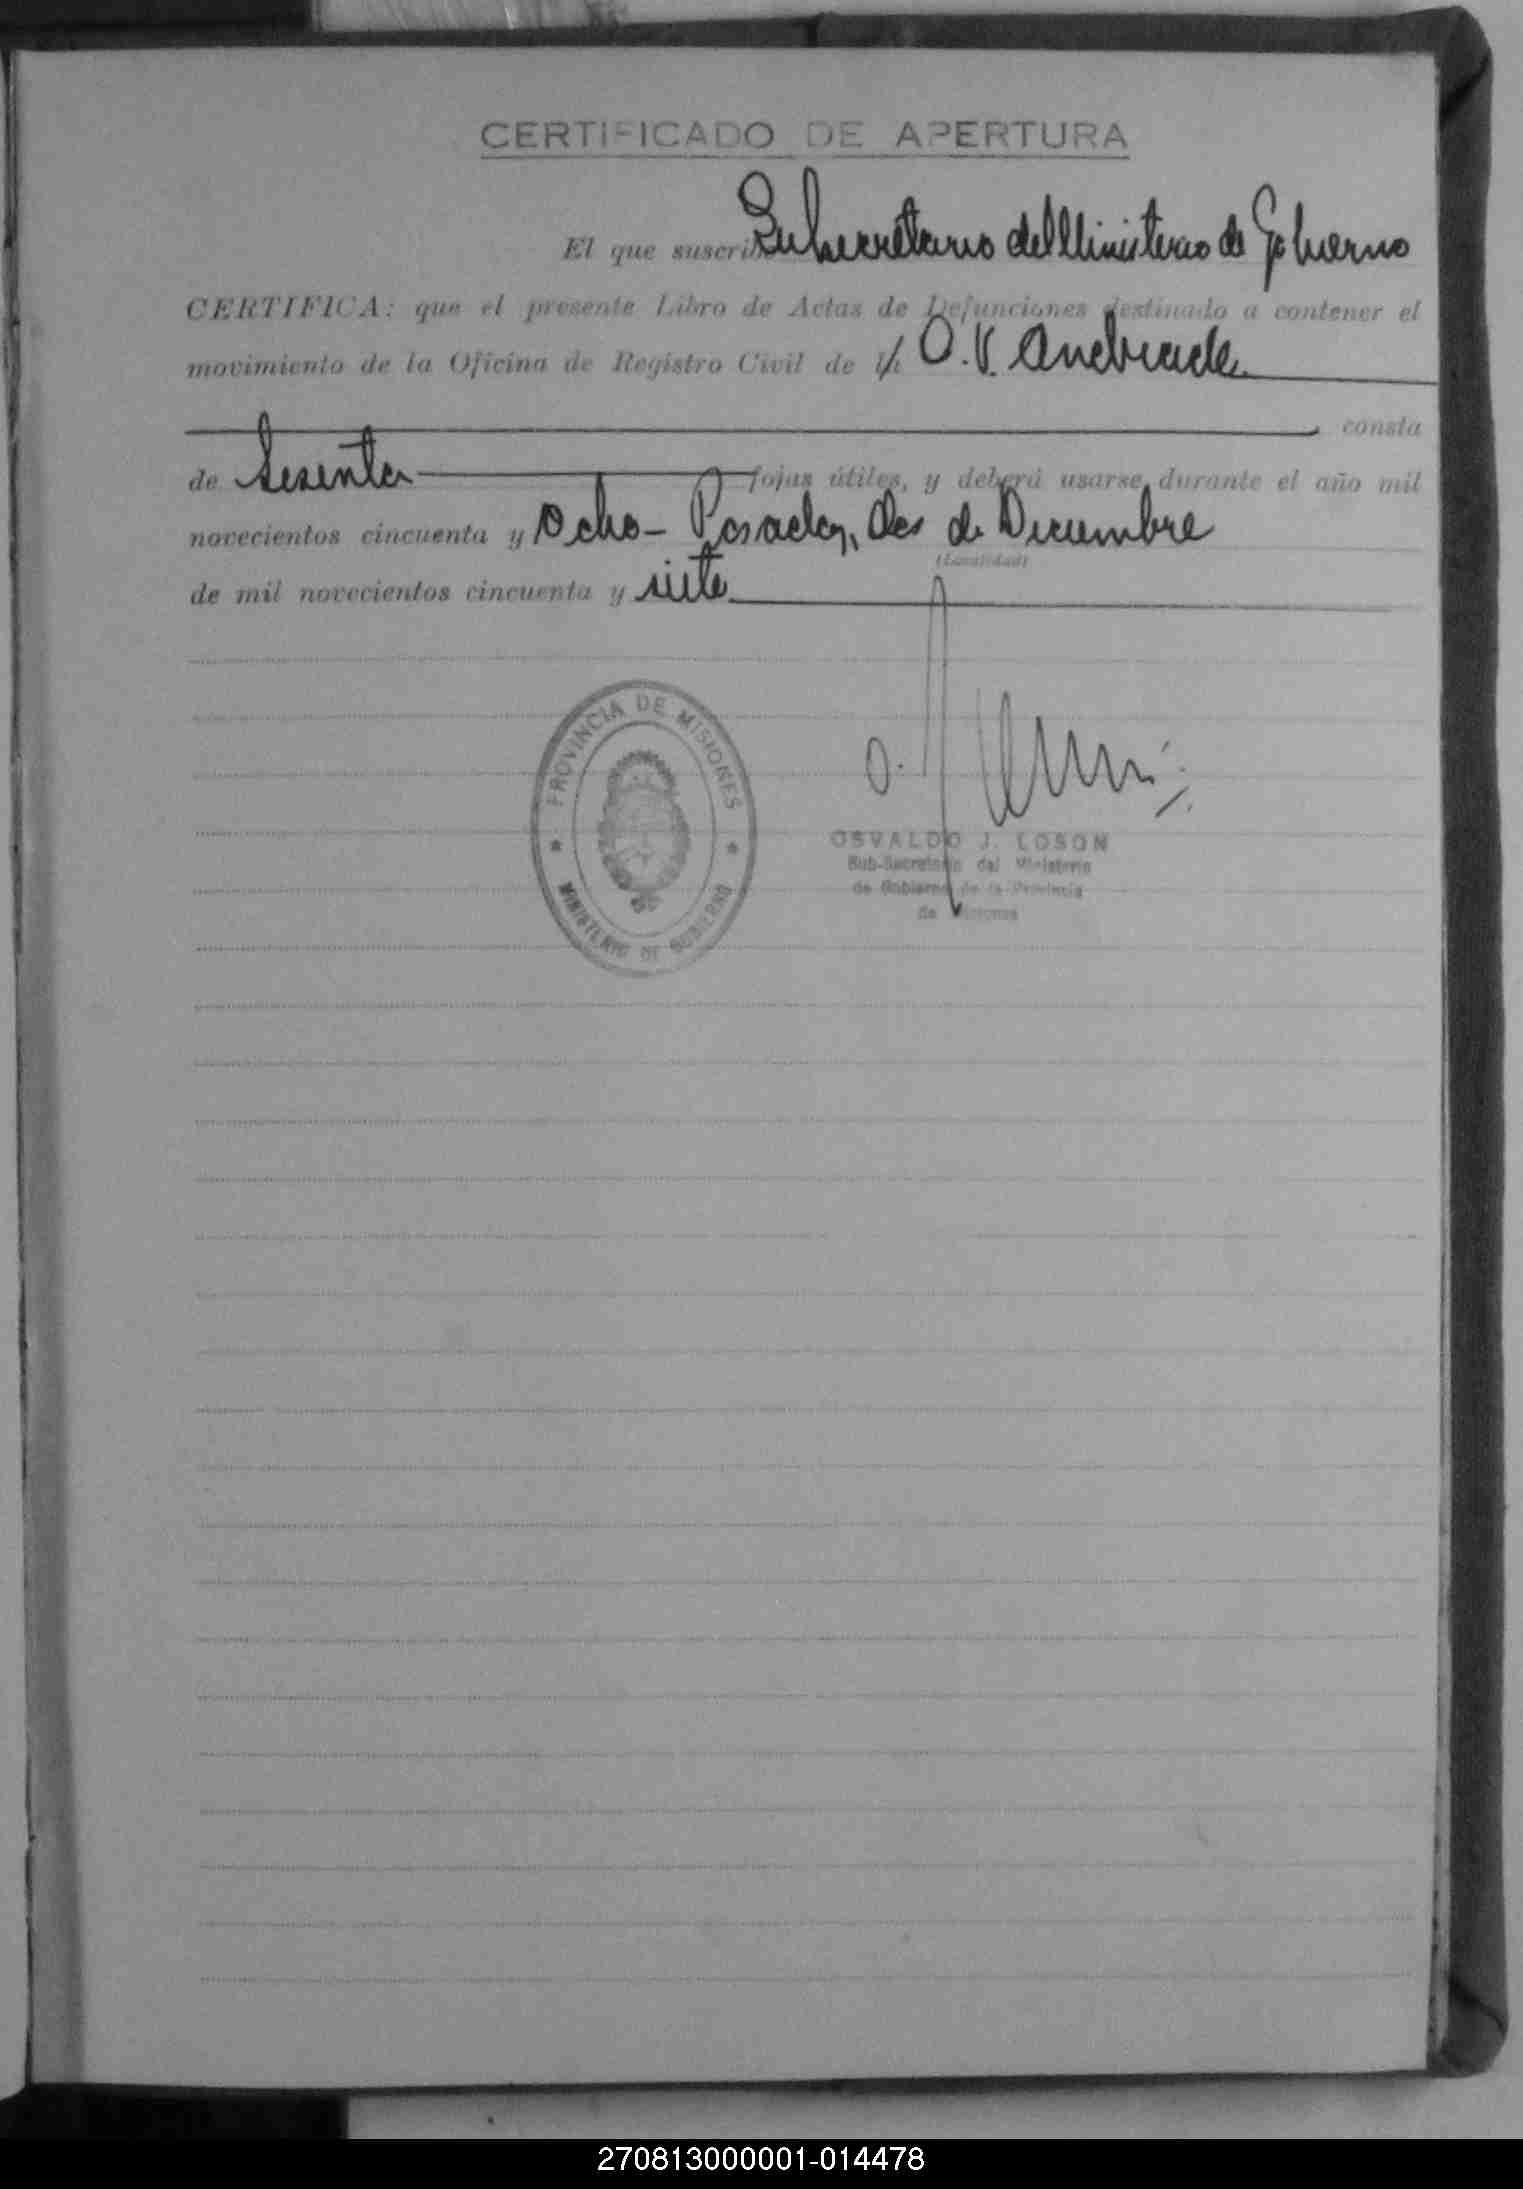 CERTIFICADO DE APERTURA
El que suscribe Subsecretario del Ministerio de Gobierno
CERTIFICA: que el presente Libro de Actas de Defunciones destinado a contener el
movimiento de la Oficina de Registro Civil de O. V. Andrade
consta
de Sesenta fojas útiles, y deberá usarse durante el año mil
novecientos cincuenta y Ocho - Posadas, dos de Diciembre
(Localidad)
de mil novecientos cincuenta y siete
PROVINCIA DE MISIONES
MINISTERIO DE GOBIERNO
OSVALDO J. LOSON
Sub-Secretario del Ministerio
de Gobierno de la Provincia
de Misiones
270813000001-014478